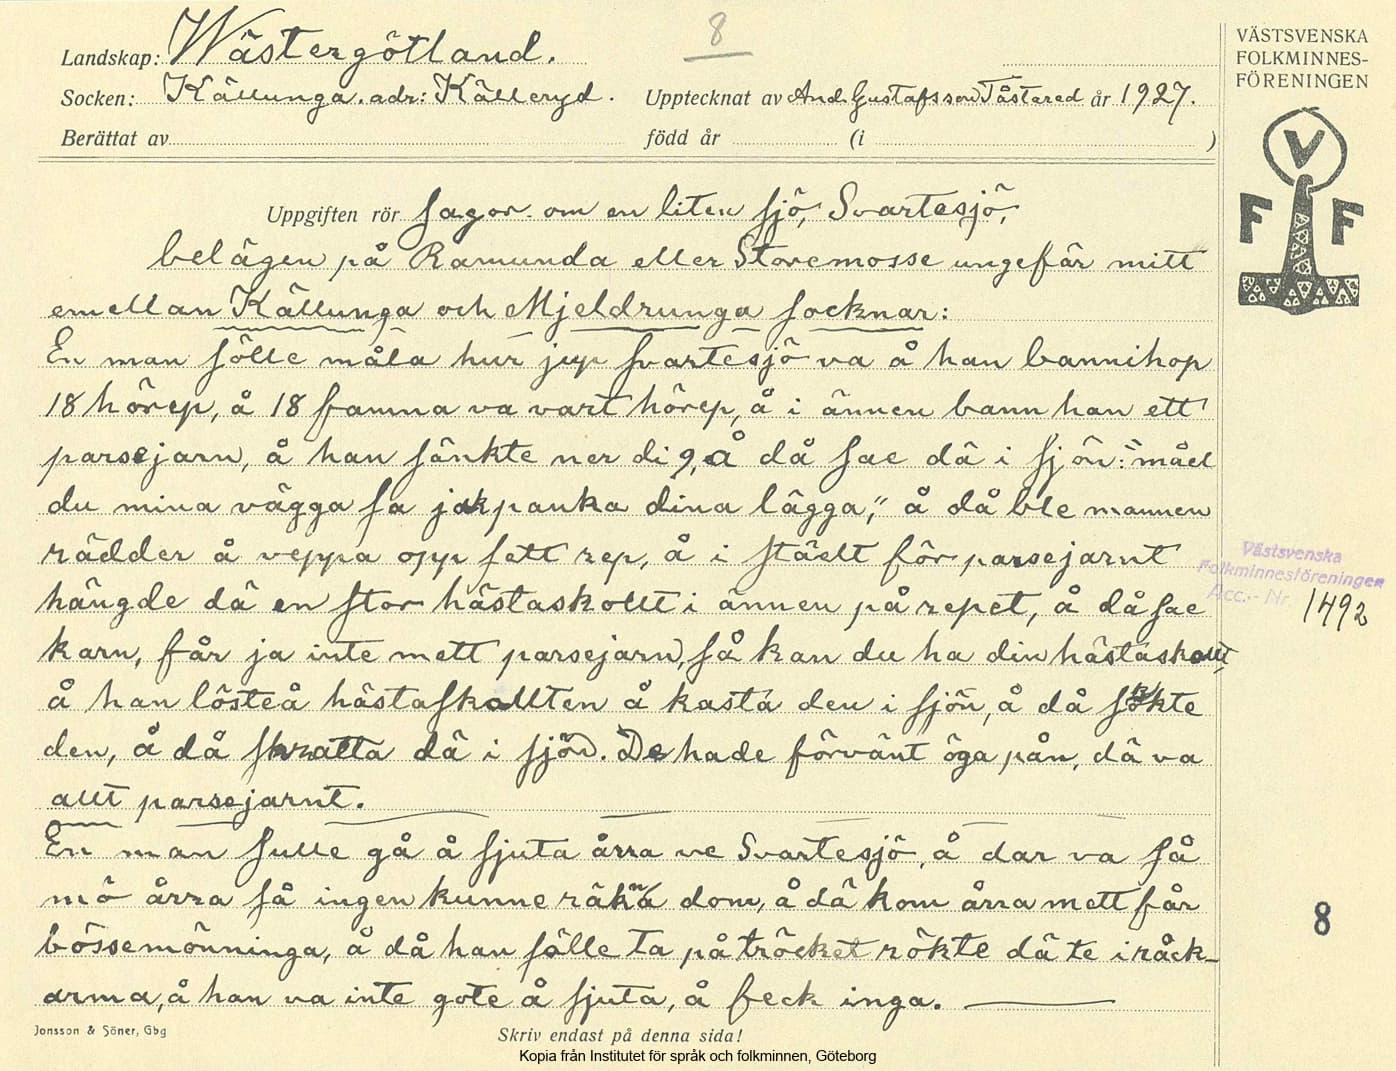 8
Landskap: Wästergötland.
Socken: Källunga. adr: Källeryd. Upptecknat av And. Gustafsson Tåstared år 1927.
Berättat av född år (i )
Uppgiften rör Sagor om en liten sjö, Svartesjö,
belägen på Ramunda eller Storemosse ungefär mitt
emellan Källunga och Mjeldrunga socknar:
En man sölle måla hur jup Svartesjö va å han bannihop
18 hörep, å 18 famna va vart hörep, å i ännen bann han ett
parsejarn, å han sänkte ner di 9, å då sae dä i sjön: "mäel
du mina vägga sa jak panka dina lägga," å då ble mannen
rädder å veppa opp sett rep, å i stäelt för parsejarnt
hängde dä en stor hästaskollt i ännen på repet, å då sae
karn, får ja inte mett parsejarn, så kan du ha din hästaskollt,
å han lösteå hästaskollten å kasta den i sjön, å då sökte
den, å då skratta dä i sjön. De hade förvänt öga pån, dä va
allt parsejarnt.
En man sulle gå å sjuta årra ve Svartesjö, å dar va så
mö årra så ingen kunne räkna dom, å dä kom årra mett får
bössemönninga, å då han sölle ta på tröcket rökte dä te i råck-
arma, å han va inte gote å sjuta, å feck inga.
Jonsson & Söner, Gbg
Skriv endast på denna sida!
Kopia från Institutet för språk och folkminnen, Göteborg
VÄSTSVENSKA
FOLKMINNES-
FÖRENINGEN
V
F F
Västsvenska
Folkminnesföreningen
Acc.- Nr. 1492
8